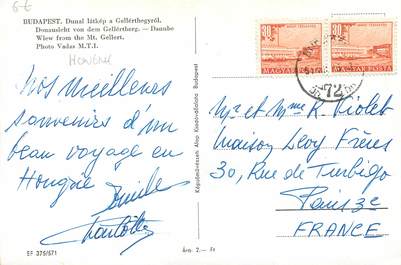 6-E
BUDAPEST. Dunai látkép a Gellérthegyről.
Donauaicht von dem Gellértberg. — Danube
Wiew from the Mt. Gellert.
Photo Vadas M.T.I.
HONGRIE
Nos meilleurs
souvenirs d'un
beau voyage en
Hongrie
Charlotte
EF 375/571
Képzőművészeti Alap Kiadóvállalata Budapest
Ára: 2.— Ft
30
30
MAGYAR POSTA
72
Mr et Mme R. Violet
Maison Levy Frères
30, Rue de Turbigo
Paris 3e
FRANCE